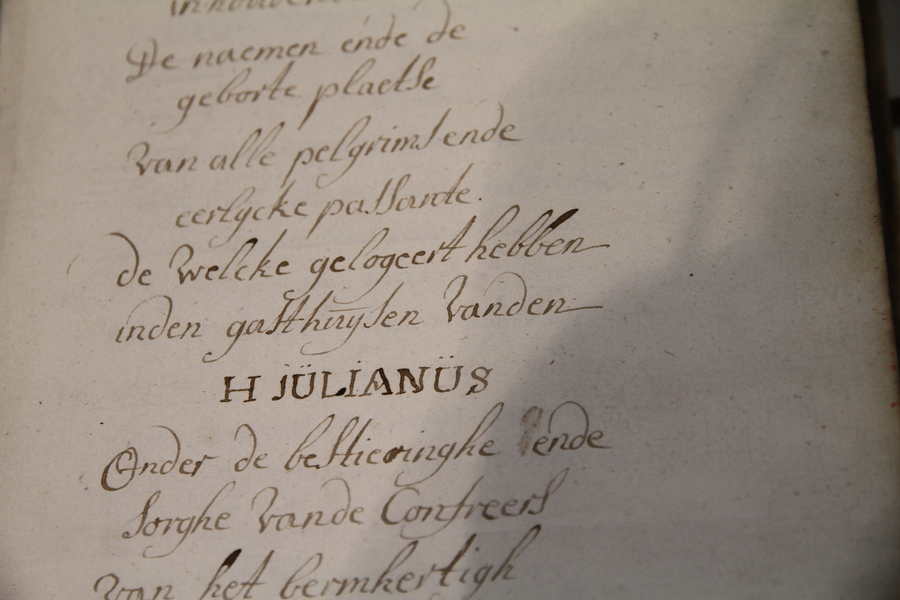 De naemen ende de
geborte plaetse
van alle pelgrims ende
eerlycke passante.
de welcke gelogeert hebben
inden gasthuysen vanden
H JÜLIANÜS
Onder de bestieringhe ende
sorghe vande Confreers
van het bermhertigh